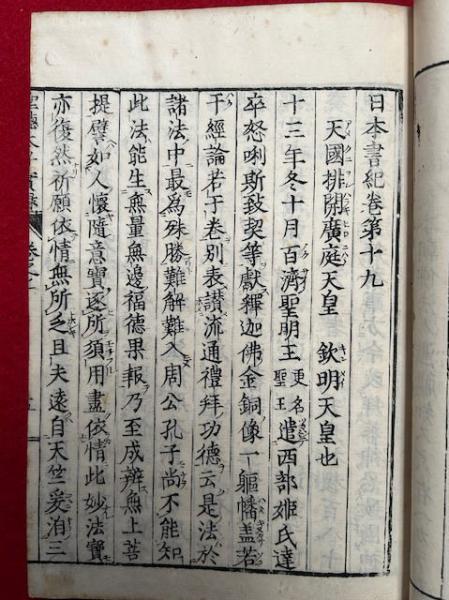 日本書紀卷第十九
天國排開廣庭天皇 欽明天皇也
十三年冬十月百濟聖明王更名聖王遣西部姬氏達
卒怒唎斯致契等獻釋迦佛金銅像一軀幡蓋若
干經論若干卷別表讃流通禮拜功德云是法於
諸法中最為殊勝難解難入周公孔子尚不能知
此法能生無量無邊福德果報乃至成辨無上菩
提譬如人懷隨意寶逐所須用盡依情此妙法寶
亦復然祈願依情無所乏且夫遠自天竺爰洎三